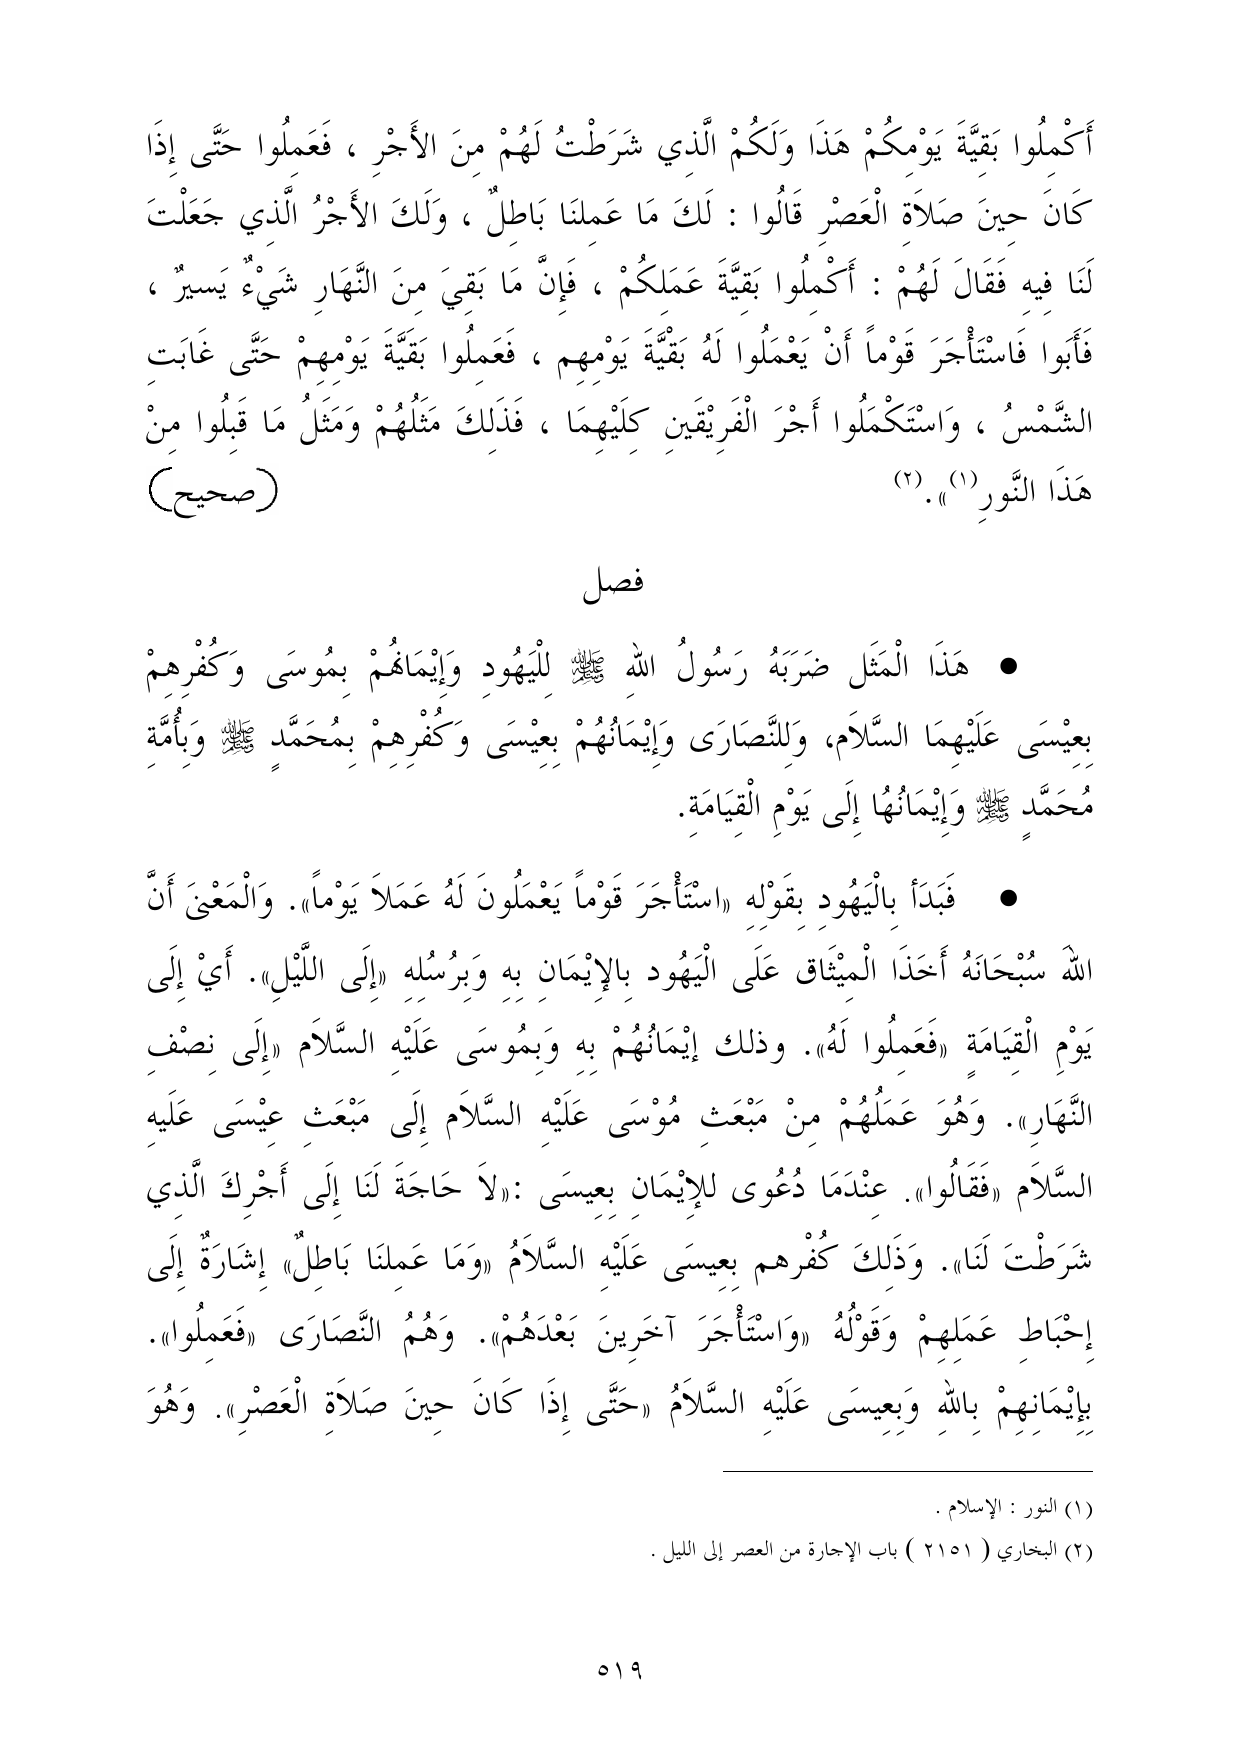 أَكْمِلُوا بَقِيَّةَ يَوْمِكُمْ هَذَا وَلَكُمْ الَّذِي شَرَطْتُ لَهُمْ مِنَ الأَجْرِ ، فَعَمِلُوا حَتَّى إِذَا
كَانَ حِينَ صَلاَةِ الْعَصْرِ قَالُوا : لَكَ مَا عَمِلنَا بَاطِلٌ ، وَلَكَ الأَجْرُ الَّذِي جَعَلْتَ
لَنَا فِيهِ فَقَالَ لَهُمْ : أَكْمِلُوا بَقِيَّةَ عَمَلِكُمْ ، فَإِنَّ مَا بَقِيَ مِنَ النَّهَارِ شَيْءٌ يَسِيرٌ ،
فَأَبَوا فَاسْتَأْجَرَ قَوْماً أَنْ يَعْمَلُوا لَهُ بَقْيَّةَ يَوْمِهِم ، فَعَمِلُوا بَقَيَّةَ يَوْمِهِمْ حَتَّى غَابَتِ
الشَّمْسُ ، وَاسْتَكْمَلُوا أَجْرَ الْفَرِيْقَينِ كِلَيْهِمَا ، فَذَلِكَ مَثَلُهُمْ وَمَثَلُ مَا قَبِلُوا مِنْ
هَذَا النَّورِ(١)».(٢) (صحيح)
فصل
● هَذَا الْمَثَل ضَرَبَهُ رَسُولُ اللهِ ﷺ لِلْيَهُودِ وَإِيْمَانُهُمْ بِمُوسَى وَكُفْرِهِمْ
بِعِيْسَى عَلَيْهِمَا السَّلاَم، وَلِلنَّصَارَى وَإِيْمَانُهُمْ بِعِيْسَى وَكُفْرِهِمْ بِمُحَمَّدٍ ﷺ وَبِأُمَّةِ
مُحَمَّدٍ ﷺ وَإِيْمَانُهُا إِلَى يَوْمِ الْقِيَامَةِ.
● فَبَدَأ بِالْيَهُودِ بِقَوْلِهِ «اسْتَأْجَرَ قَوْماً يَعْمَلُونَ لَهُ عَمَلاَ يَوْماً». وَالْمَعْنَى أَنَّ
اللهَ سُبْحَانَهُ أَخَذَا الْمِيْثَاق عَلَى الْيَهُودِ بِالإِيْمَانِ بِهِ وَبِرُسُلِهِ «إِلَى اللَّيْلِ». أَيْ إِلَى
يَوْمِ الْقِيَامَةٍ «فَعَمِلُوا لَهُ». وذلك إِيْمَانُهُمْ بِهِ وَبِمُوسَى عَلَيْهِ السَّلاَم «إِلَى نِصْفِ
النَّهَارِ». وَهُوَ عَمَلُهُمْ مِنْ مَبْعَثِ مُوْسَى عَلَيْهِ السَّلاَم إِلَى مَبْعَثِ عِيْسَى عَلَيهِ
السَّلاَم «فَقَالُوا». عِنْدَمَا دُعُوى للإِيْمَانِ بِعِيسَى :«لاَ حَاجَةَ لَنَا إِلَى أَجْرِكَ الَّذِي
شَرَطْتَ لَنَا». وَذَلِكَ كُفْرهم بِعِيسَى عَلَيْهِ السَّلاَمُ «وَمَا عَمِلنَا بَاطِلٌ» إِشَارَةٌ إِلَى
إِحْبَاطِ عَمَلِهِمْ وَقَوْلُهُ «وَاسْتَأْجَرَ آخَرِينَ بَعْدَهُمْ». وَهُمُ النَّصَارَى «فَعَمِلُوا».
بِإِيْمَانِهِمْ بِاللهِ وَبِعِيسَى عَلَيْهِ السَّلاَمُ «حَتَّى إِذَا كَانَ حِينَ صَلاَةِ الْعَصْرِ». وَهُوَ
(١) النور : الإسلام .
(٢) البخاري ( ٢١٥١ ) باب الإجارة من العصر إلى الليل .
٥١٩